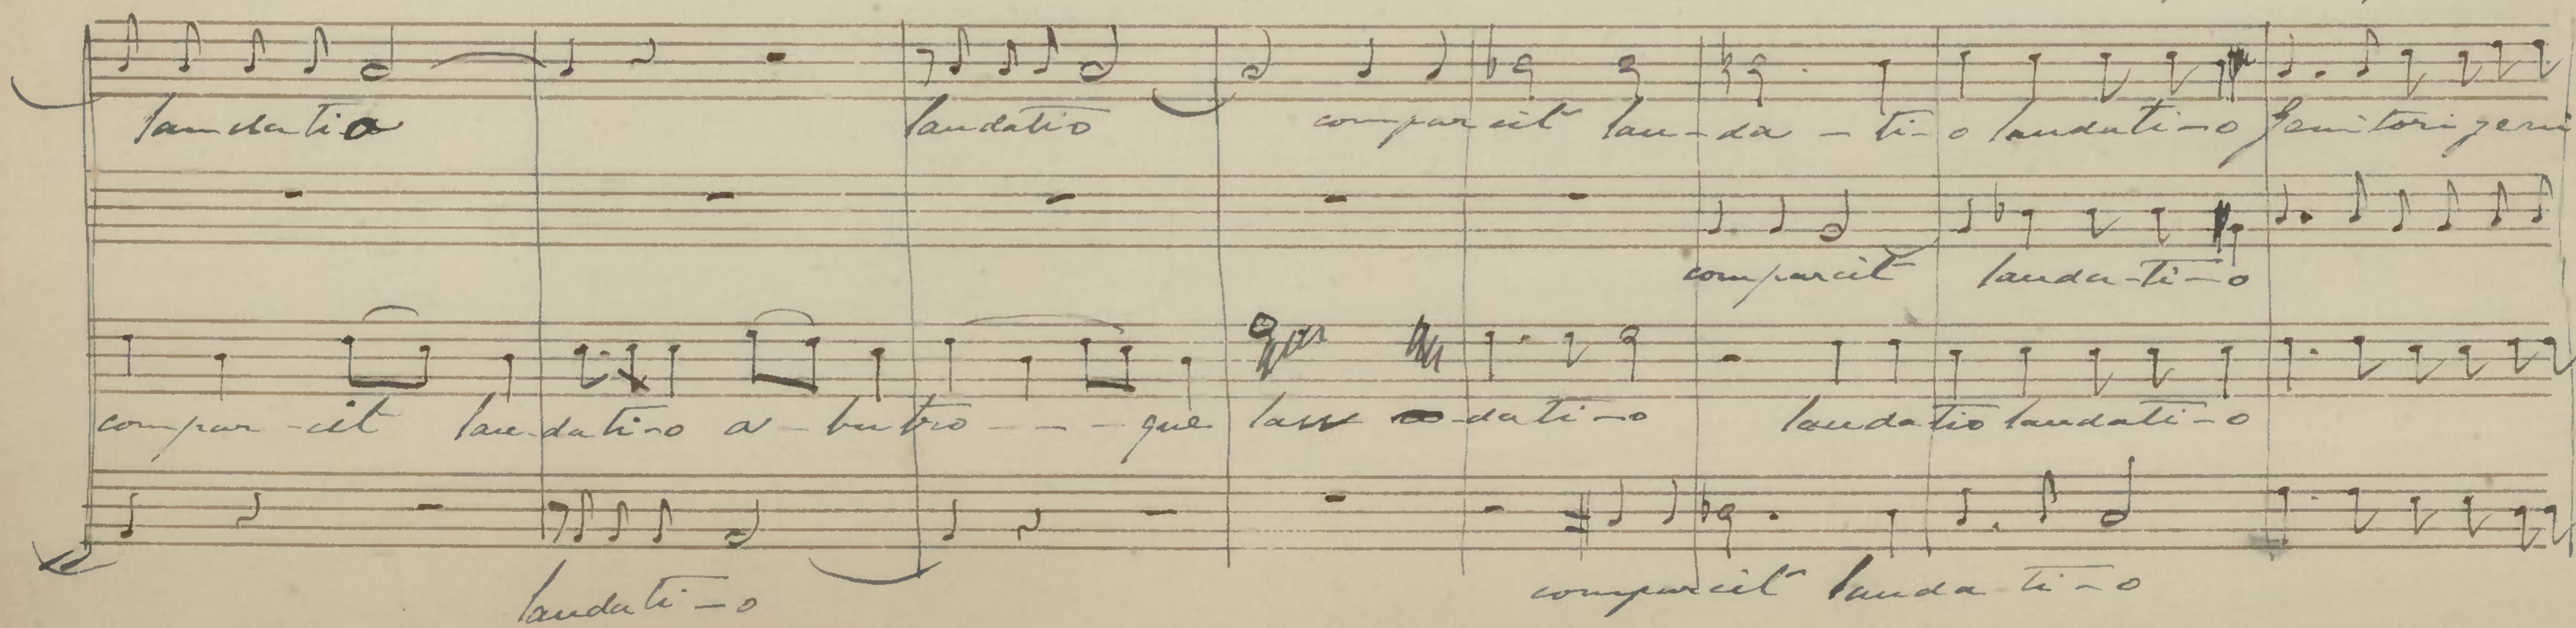 laudatio laudatio compar cit lau-da-ti-o laudati-o Genitori geni
comparcit lauda-ti-o
compar-cit lau-dati-o a-bu tro---que lau dati-o laudatio laudati-o
laudati-o comparcit lauda ti-o